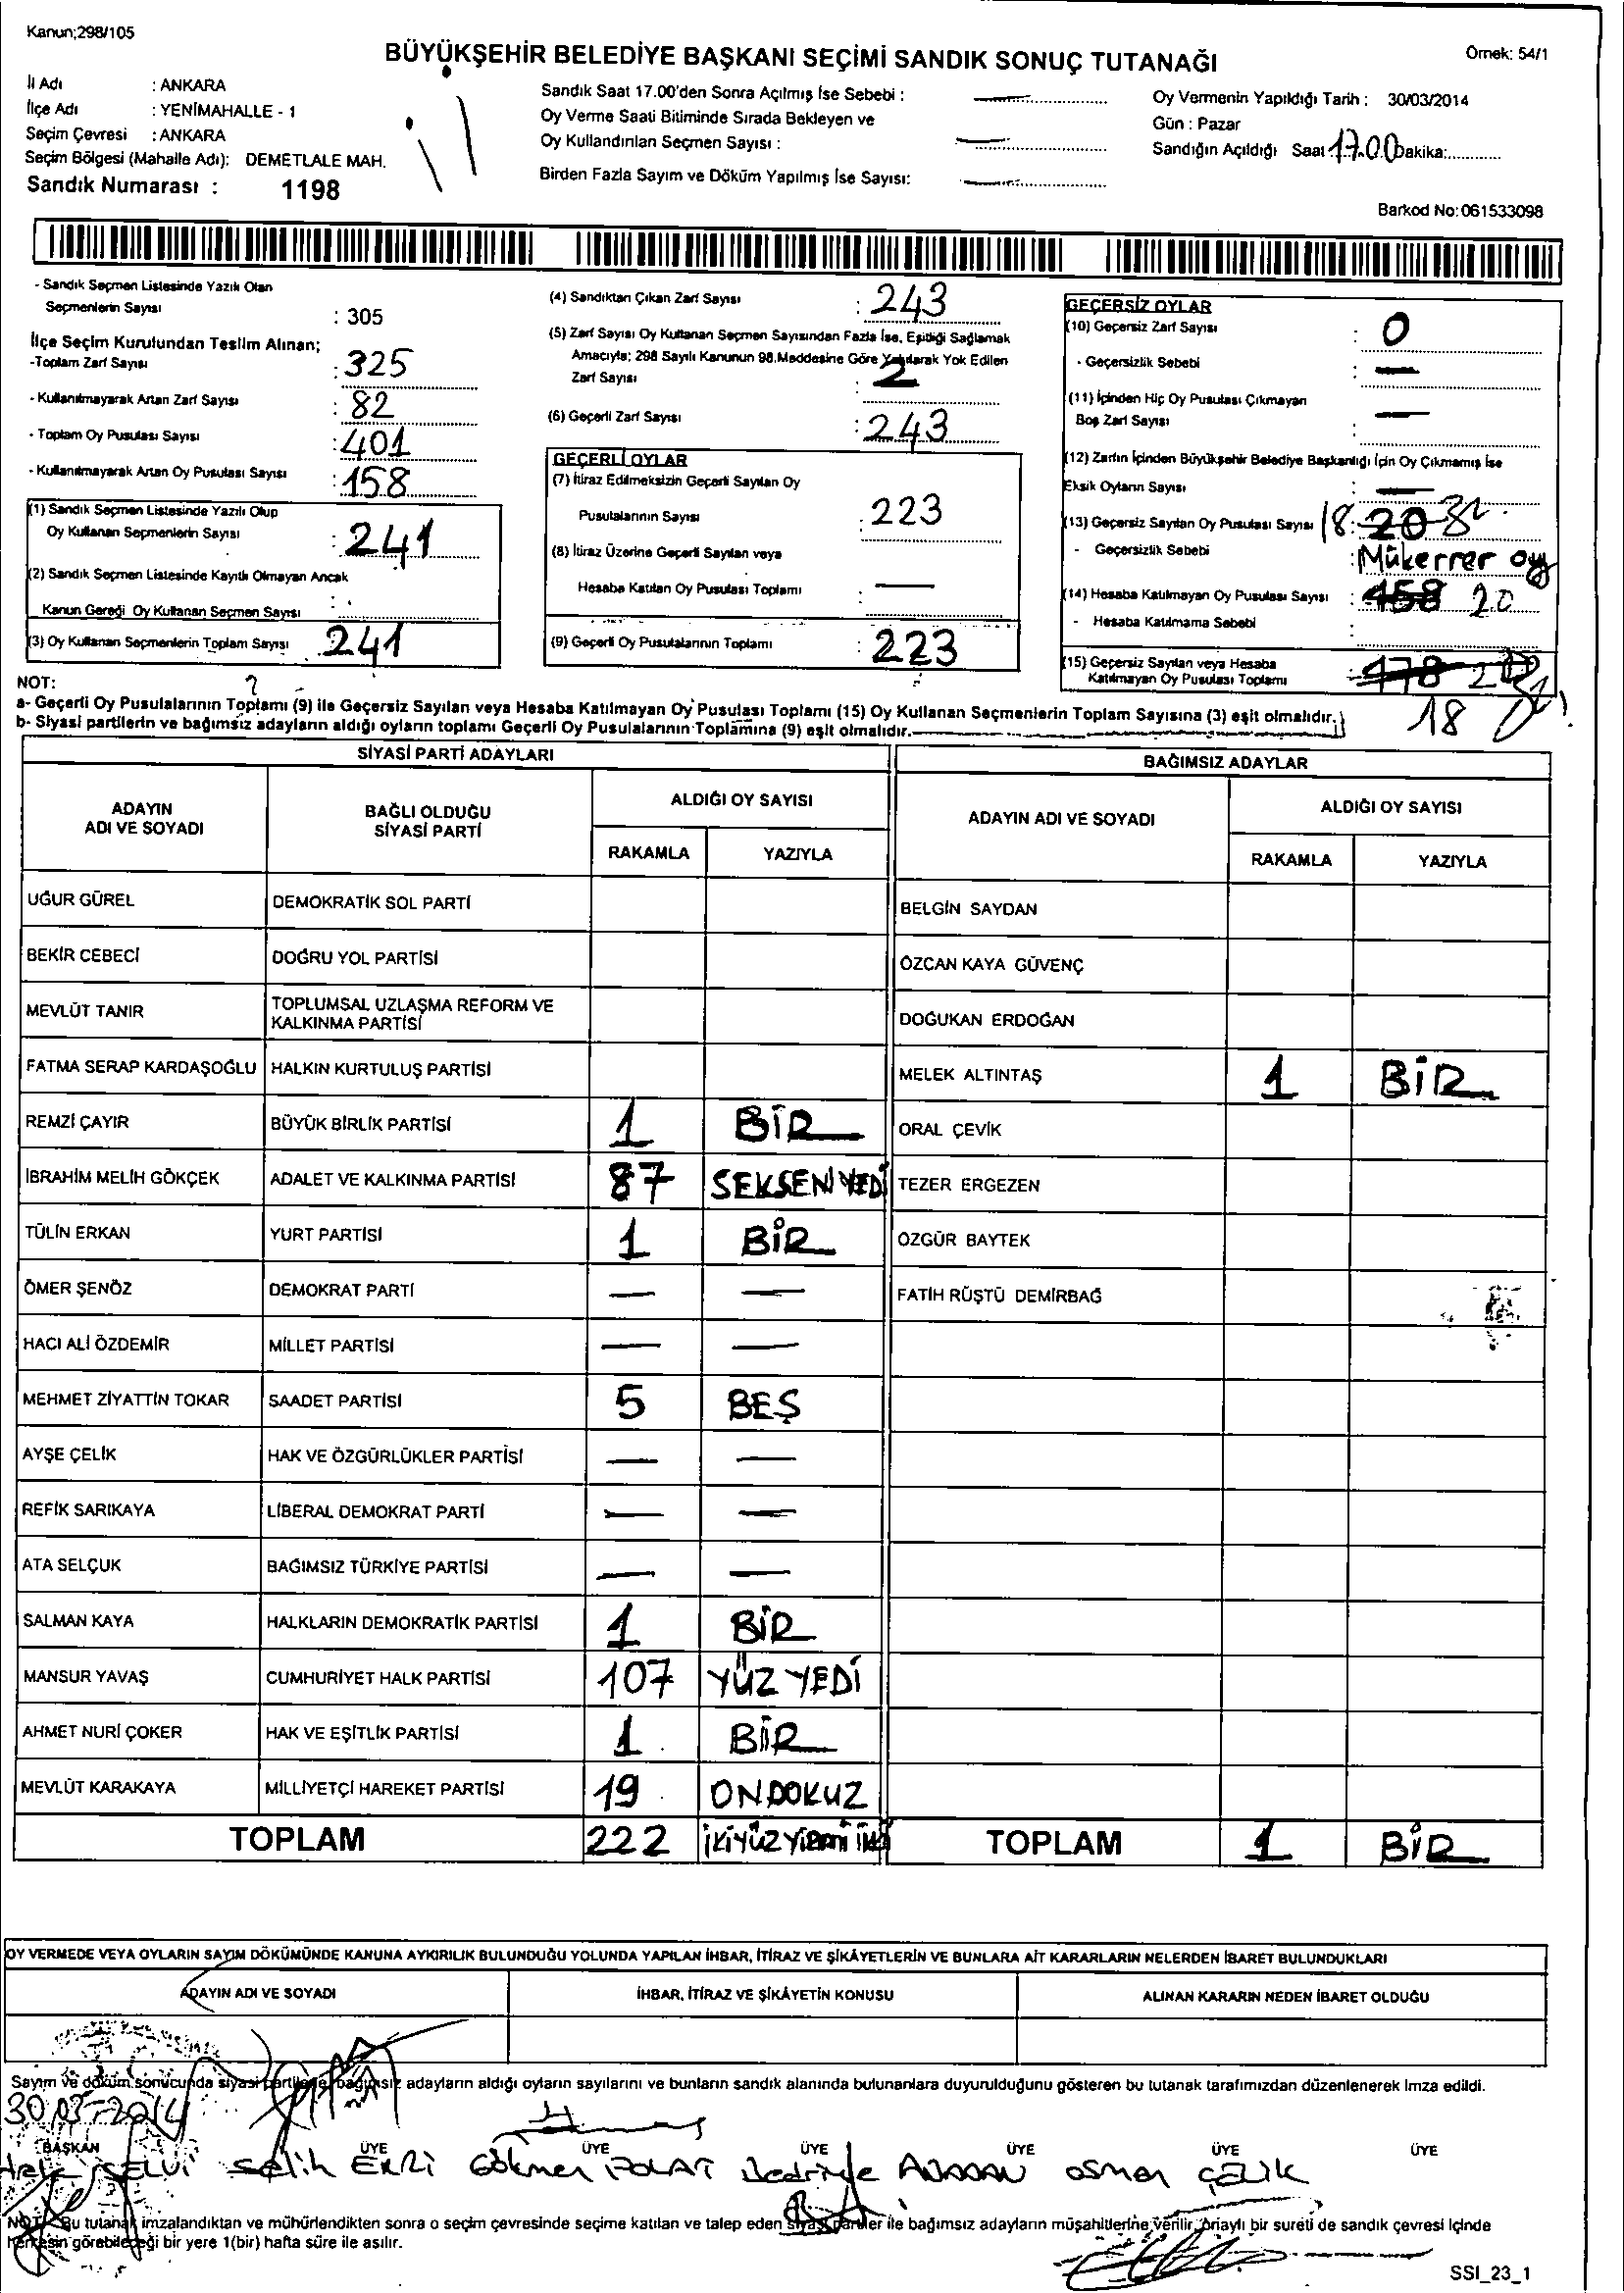 Kanun;298/105
BÜYÜKŞEHİR BELEDİYE BAŞKANI SEÇİMİ SANDIK SONUÇ TUTANAĞI
Örnek: 54/1
İl Adı : ANKARA
İlçe Adı : YENİMAHALLE - 1
Seçim Çevresi : ANKARA
Seçim Bölgesi (Mahalle Adı): DEMETLALE MAH.
Sandık Numarası : 1198
Sandık Saat 17.00'den Sonra Açılmış İse Sebebi :
Oy Verme Saati Bitiminde Sırada Bekleyen ve
Oy Kullandırılan Seçmen Sayısı :
Birden Fazla Sayım ve Döküm Yapılmış İse Sayısı:
Oy Vermenin Yapıldığı Tarih : 30/03/2014
Gün : Pazar
Sandığın Açıldığı Saat 17.00 Dakika:
Barkod No:061533098
- Sandık Seçmen Listesinde Yazılı Olan
Seçmenlerin Sayısı : 305
İlçe Seçim Kurulundan Teslim Alınan;
-Toplam Zarf Sayısı : 325
- Kullanılmayarak Artan Zarf Sayısı : 82
- Toplam Oy Pusulası Sayısı : 401
- Kullanılmayarak Artan Oy Pusulası Sayısı : 158
(1) Sandık Seçmen Listesinde Yazılı Olup
Oy Kullanan Seçmenlerin Sayısı : 241
(2) Sandık Seçmen Listesinde Kayıtlı Olmayan Ancak
Kanun Gereği Oy Kullanan Seçmen Sayısı :
(3) Oy Kullanan Seçmenlerin Toplam Sayısı : 241
(4) Sandıktan Çıkan Zarf Sayısı : 243
(5) Zarf Sayısı Oy Kullanan Seçmen Sayısından Fazla İse, Eşitliği Sağlamak
Amacıyla; 298 Sayılı Kanunun 98.Maddesine Göre Yakılarak Yok Edilen
Zarf Sayısı : 2
(6) Geçerli Zarf Sayısı : 243
GEÇERLİ OYLAR
(7) İtiraz Edilmeksizin Geçerli Sayılan Oy
Pusulalarının Sayısı : 223
(8) İtiraz Üzerine Geçerli Sayılan veya
Hesaba Katılan Oy Pusulası Toplamı : —
(9) Geçerli Oy Pusulalarının Toplamı : 223
GEÇERSİZ OYLAR
(10) Geçersiz Zarf Sayısı : 0
- Geçersizlik Sebebi : —
(11) İçinden Hiç Oy Pusulası Çıkmayan
Boş Zarf Sayısı : —
(12) Zarfın İçinden Büyükşehir Belediye Başkanlığı İçin Oy Çıkmamış İse
Eksik Oyların Sayısı : —
(13) Geçersiz Sayılan Oy Pusulası Sayısı 18 : 20
- Geçersizlik Sebebi : Mükerrer oy
(14) Hesaba Katılmayan Oy Pusulası Sayısı : 158 20
- Hesaba Katılmama Sebebi :
(15) Geçersiz Sayılan veya Hesaba
Katılmayan Oy Pusulası Toplamı : 178 20
18
NOT:
a- Geçerli Oy Pusulalarının Toplamı (9) ile Geçersiz Sayılan veya Hesaba Katılmayan Oy Pusulası Toplamı (15) Oy Kullanan Seçmenlerin Toplam Sayısına (3) eşit olmalıdır.
b- Siyasi partilerin ve bağımsız adayların aldığı oyların toplamı Geçerli Oy Pusulalarının Toplamına (9) eşit olmalıdır.
SİYASİ PARTİ ADAYLARI
BAĞIMSIZ ADAYLAR
ADAYIN
ADI VE SOYADI
BAĞLI OLDUĞU
SİYASİ PARTİ
ALDIĞI OY SAYISI
RAKAMLA YAZIYLA
ADAYIN ADI VE SOYADI
ALDIĞI OY SAYISI
RAKAMLA YAZIYLA
UĞUR GÜREL DEMOKRATİK SOL PARTİ BELGİN SAYDAN
BEKİR CEBECİ DOĞRU YOL PARTİSİ ÖZCAN KAYA GÜVENÇ
MEVLÜT TANIR TOPLUMSAL UZLAŞMA REFORM VE
KALKINMA PARTİSİ DOĞUKAN ERDOĞAN
FATMA SERAP KARDAŞOĞLU HALKIN KURTULUŞ PARTİSİ MELEK ALTINTAŞ 1 BİR
REMZİ ÇAYIR BÜYÜK BİRLİK PARTİSİ 1 BİR ORAL ÇEVİK
İBRAHİM MELİH GÖKÇEK ADALET VE KALKINMA PARTİSİ 87 SEKSENYEDİ TEZER ERGEZEN
TÜLİN ERKAN YURT PARTİSİ 1 BİR ÖZGÜR BAYTEK
ÖMER ŞENÖZ DEMOKRAT PARTİ — — FATİH RÜŞTÜ DEMİRBAĞ
HACI ALİ ÖZDEMİR MİLLET PARTİSİ — —
MEHMET ZİYATTİN TOKAR SAADET PARTİSİ 5 BEŞ
AYŞE ÇELİK HAK VE ÖZGÜRLÜKLER PARTİSİ — —
REFİK SARIKAYA LİBERAL DEMOKRAT PARTİ — —
ATA SELÇUK BAĞIMSIZ TÜRKİYE PARTİSİ — —
SALMAN KAYA HALKLARIN DEMOKRATİK PARTİSİ 1 BİR
MANSUR YAVAŞ CUMHURİYET HALK PARTİSİ 107 YÜZ YEDİ
AHMET NURİ ÇOKER HAK VE EŞİTLİK PARTİSİ 1 BİR
MEVLÜT KARAKAYA MİLLİYETÇİ HAREKET PARTİSİ 19 ONDOKUZ
TOPLAM 222 İKİYÜZ YİRMİ İKİ TOPLAM 1 BİR
OY VERMEDE VEYA OYLARIN SAYIM DÖKÜMÜNDE KANUNA AYKIRILIK BULUNDUĞU YOLUNDA YAPILAN İHBAR, İTİRAZ VE ŞİKÂYETLERİN VE BUNLARA AİT KARARLARIN NELERDEN İBARET BULUNDUKLARI
ADAYIN ADI VE SOYADI İHBAR, İTİRAZ VE ŞİKÂYETİN KONUSU ALINAN KARARIN NEDEN İBARET OLDUĞU
Sayım ve döküm sonucunda siyasi partilerle bağımsız adayların aldığı oyların sayılarını ve bunların sandık alanında bulunanlara duyurulduğunu gösteren bu tutanak tarafımızdan düzenlenerek imza edildi.
30.03-2014
BAŞKAN ÜYE ÜYE ÜYE ÜYE ÜYE ÜYE
SELVİ Salih EKRİ Gökmen POLAT osman ÇELİK
NOT: Bu tutanak imzalandıktan ve mühürlendikten sonra o seçim çevresinde seçime katılan ve talep eden siyasi partiler ile bağımsız adayların müşahitlerine verilir. Onaylı bir sureti de sandık çevresi içinde
herkesin görebileceği bir yere 1(bir) hafta süre ile asılır.
SSI_23_1